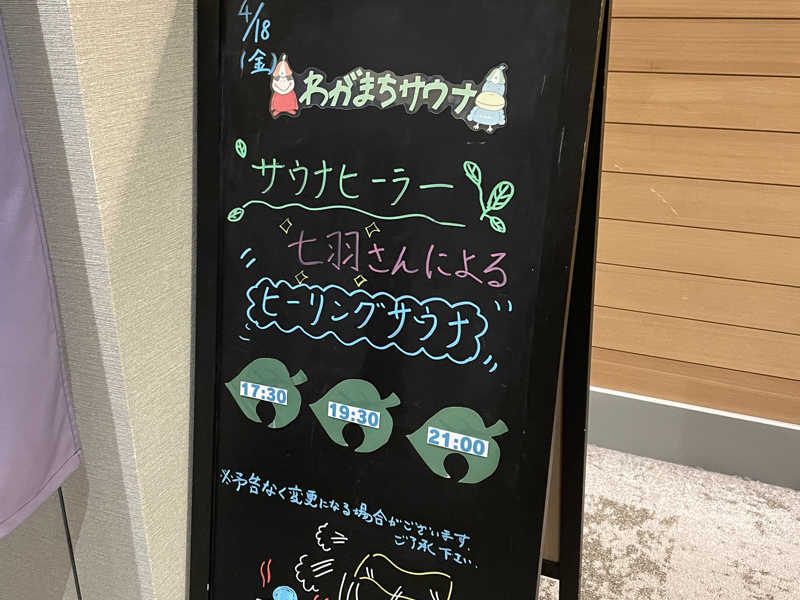 4/18
(金)
わがまちサウナ
サウナヒーラー
七羽さんによる
ヒーリングサウナ
17:30
19:30
21:00
※予告なく変更になる場合がございます。
ご了承下さい。